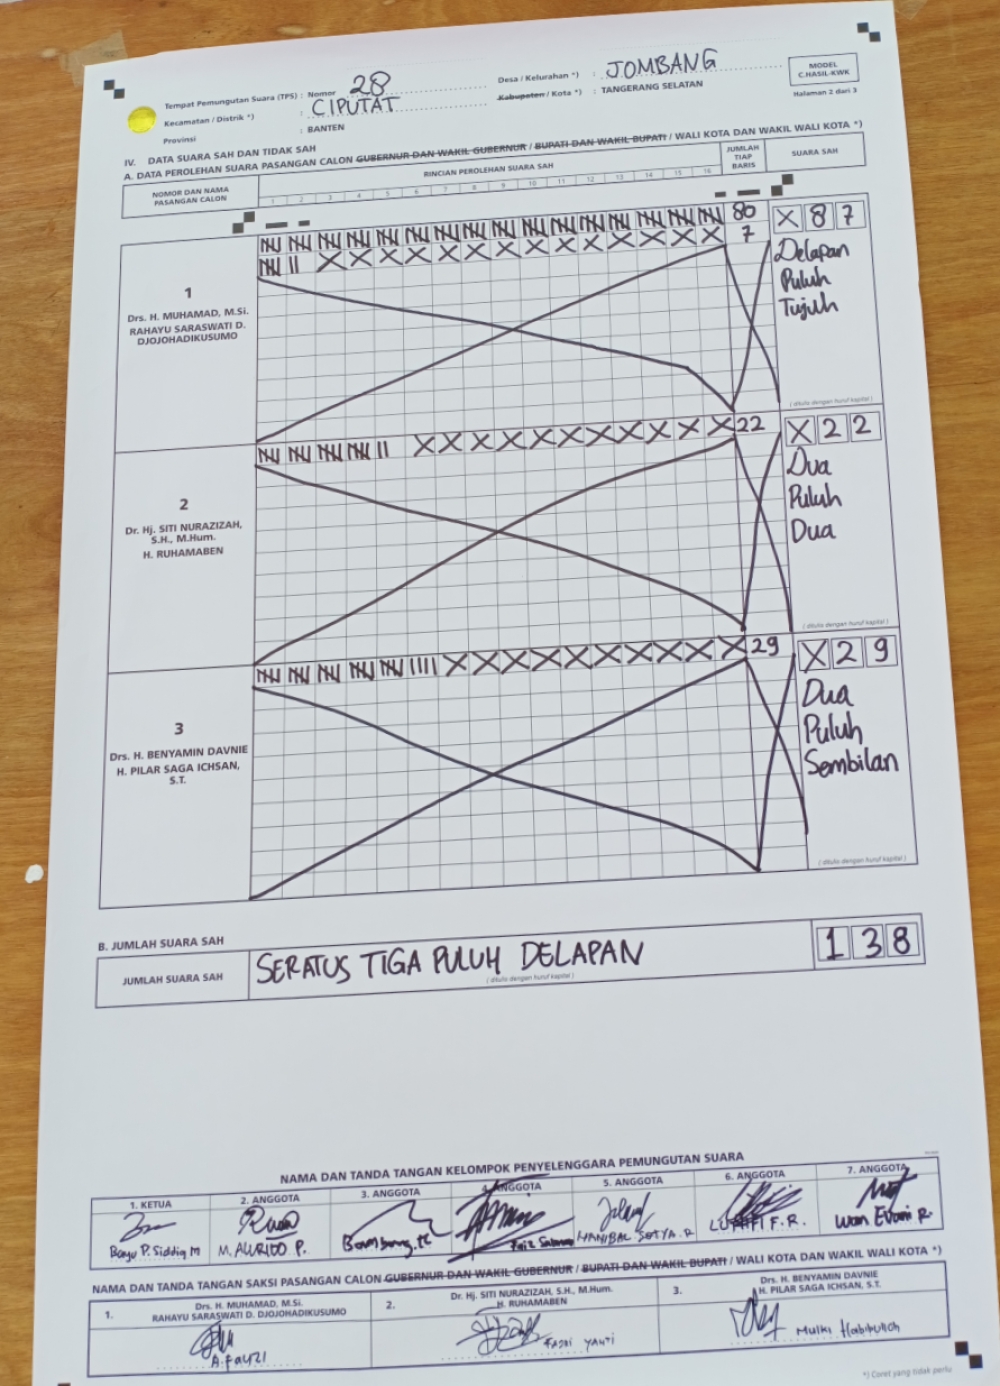 MODEL
C.HASIL-KWK
Halaman 2 dari 3
Tempat Pemungutan Suara (TPS) : Nomor 28
Desa / Kelurahan *) : JOMBANG
Kecamatan / Distrik *) : CIPUTAT
Kabupaten / Kota *) : TANGERANG SELATAN
Provinsi : BANTEN
IV. DATA SUARA SAH DAN TIDAK SAH
A. DATA PEROLEHAN SUARA PASANGAN CALON GUBERNUR DAN WAKIL GUBERNUR / BUPATI DAN WAKIL BUPATI / WALI KOTA DAN WAKIL WALI KOTA *)
NOMOR DAN NAMA PASANGAN CALON
RINCIAN PEROLEHAN SUARA SAH
1 2 3 4 5 6 7 8 9 10 11 12 13 14 15 16
JUMLAH TIAP BARIS
SUARA SAH
1
Drs. H. MUHAMAD, M.Si.
RAHAYU SARASWATI D.
DJOJOHADIKUSUMO
80
7
X 8 7
Delapan
Puluh
Tujuh
( ditulis dengan huruf kapital )
2
Dr. Hj. SITI NURAZIZAH,
S.H., M.Hum.
H. RUHAMABEN
22
X 2 2
Dua
Puluh
Dua
( ditulis dengan huruf kapital )
3
Drs. H. BENYAMIN DAVNIE
H. PILAR SAGA ICHSAN,
S.T.
29
X 2 9
Dua
Puluh
Sembilan
( ditulis dengan huruf kapital )
B. JUMLAH SUARA SAH
JUMLAH SUARA SAH
SERATUS TIGA PULUH DELAPAN
( ditulis dengan huruf kapital )
1 3 8
NAMA DAN TANDA TANGAN KELOMPOK PENYELENGGARA PEMUNGUTAN SUARA
1. KETUA 2. ANGGOTA 3. ANGGOTA 4. ANGGOTA 5. ANGGOTA 6. ANGGOTA 7. ANGGOTA
Bayu P. Siddiq M M. AURIDO P. Bambang HANIBAL SETYA. R LUTHFI F.R. Wan
NAMA DAN TANDA TANGAN SAKSI PASANGAN CALON GUBERNUR DAN WAKIL GUBERNUR / BUPATI DAN WAKIL BUPATI / WALI KOTA DAN WAKIL WALI KOTA *)
1. Drs. H. MUHAMAD, M.Si.
RAHAYU SARASWATI D. DJOJOHADIKUSUMO
A. Fauzi
2. Dr. Hj. SITI NURAZIZAH, S.H., M.Hum.
H. RUHAMABEN
3. Drs. H. BENYAMIN DAVNIE
H. PILAR SAGA ICHSAN, S.T.
Mulki Habibulloh
*) Coret yang tidak perlu